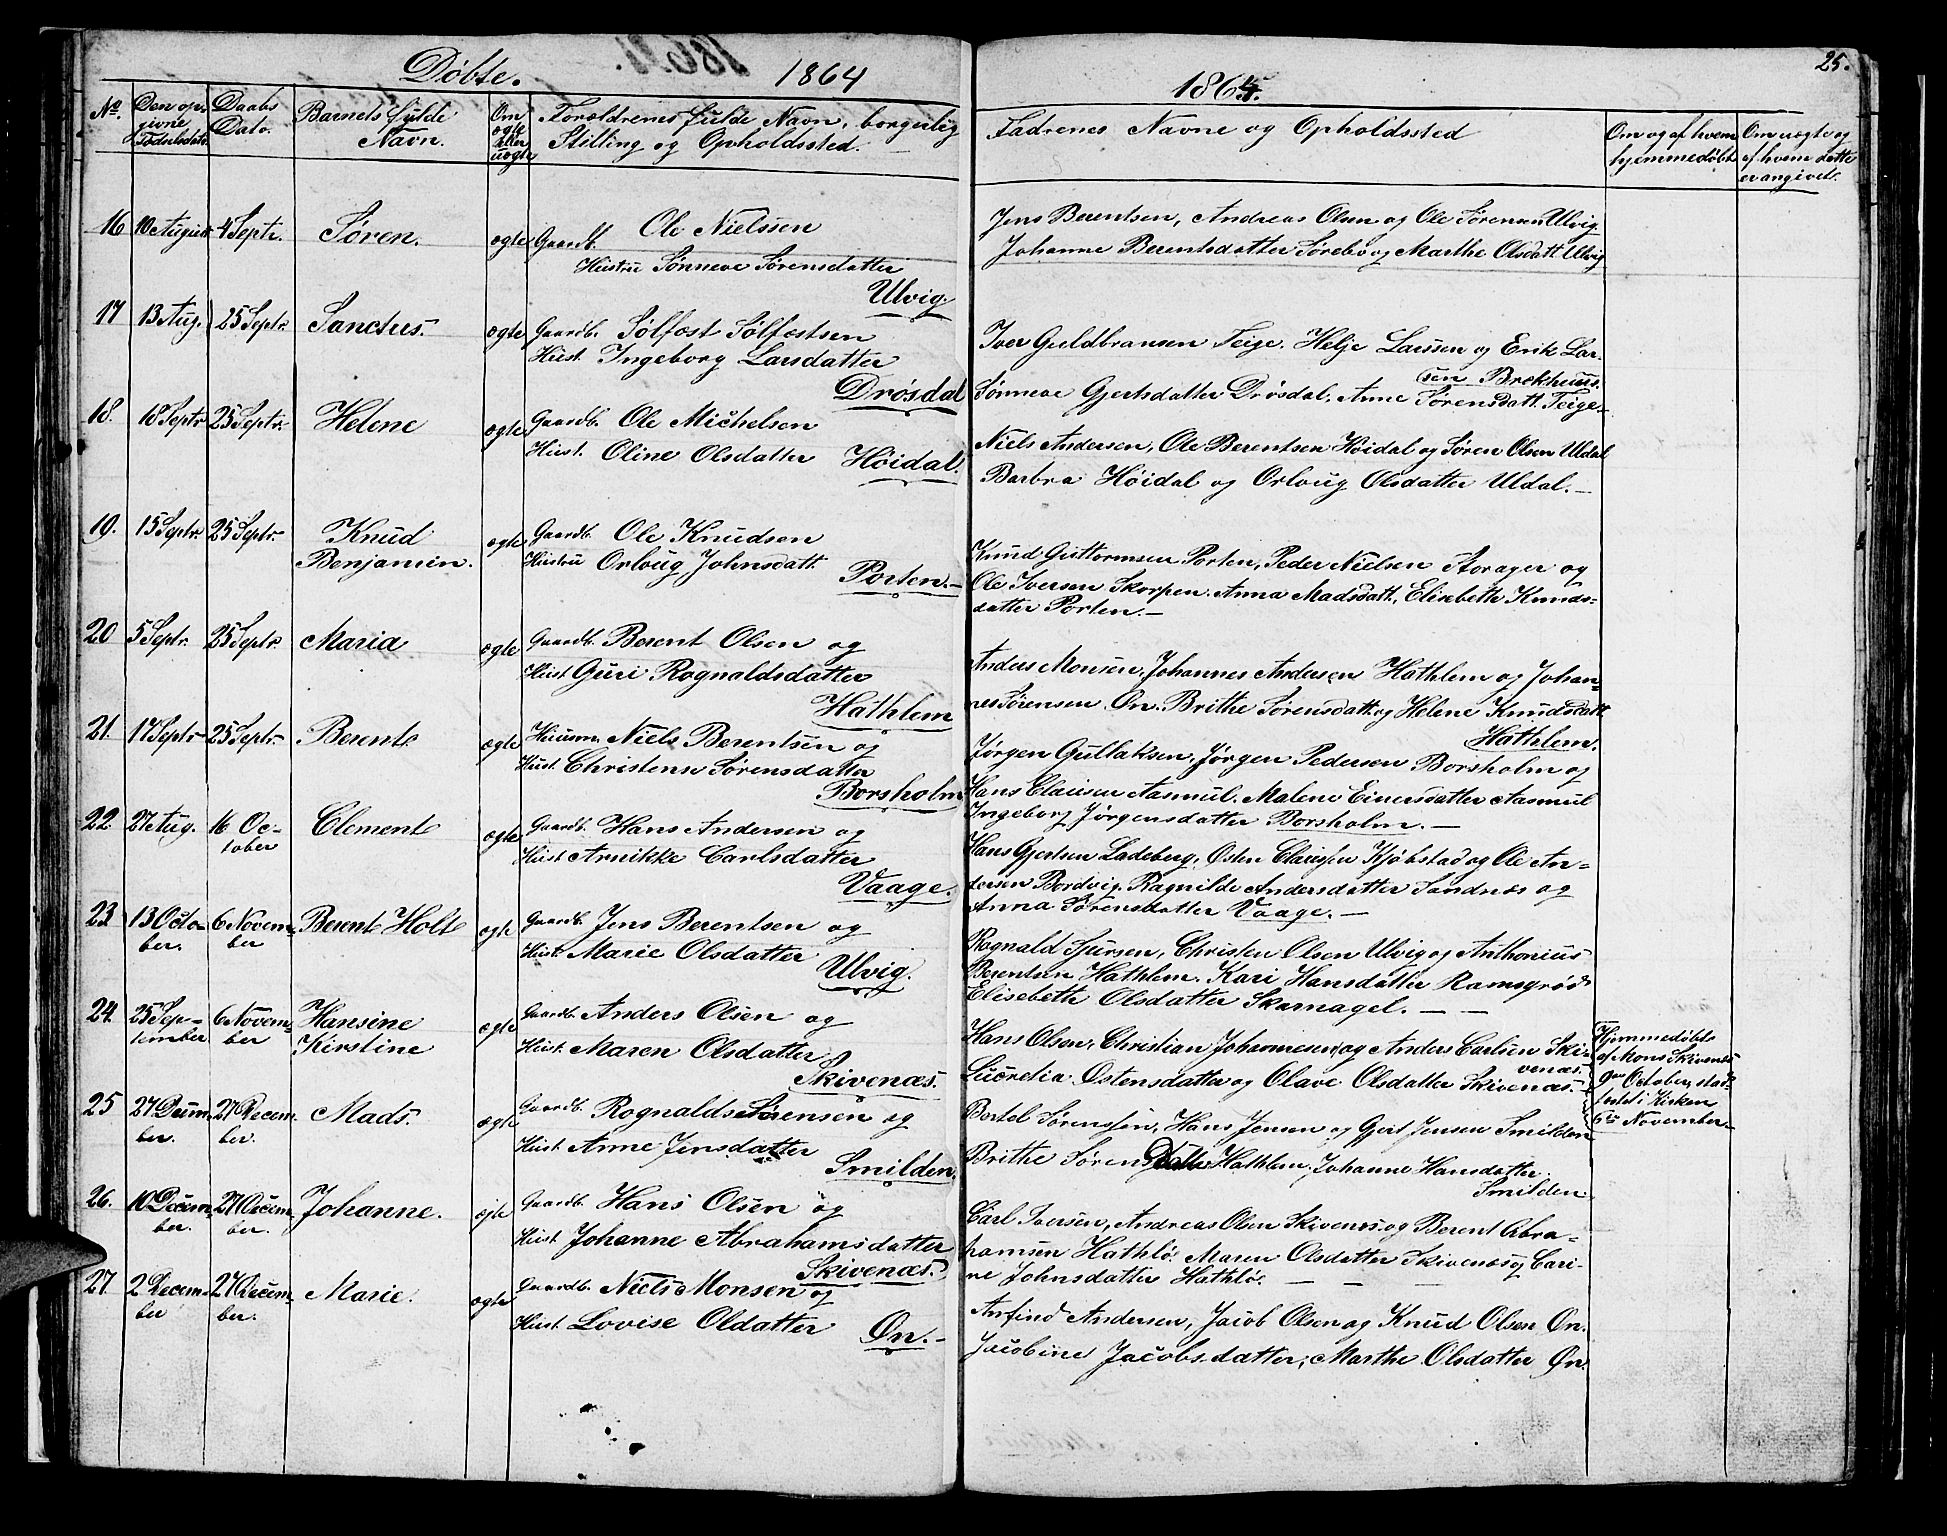 Døbte. 1864
1864. 25.
No. Den opgivne Fødselsdato Daabs Dato. Barnets fulde Navn. Om ægte eller uægte Forældrenes fulde Navn, borgerlig Stilling og Opholdssted.
Fadrenes Navne og Opholdssted Om og af hvem hjemmedøbt Om uægte og af hvem dette er angivet.
16 10 August 4 Septr. Søren. ægte Gaardb. Ole Nielssen
Hustru Sønneve Sørensdatter
Ulvig.
Jens Berentsen, Andreas Olsen og Ole Sørensen Ulvig.
Johanne Berentsdatter Sørebø og Marthe Olsdatt. Ulvig
17 13 Aug. 25 Septr. Sanctus. ægte Gaardb. Sølfæst Sølfæstsen
Hust. Ingeborg Larsdatter
Drøsdal
Iver Guldbransen Teige, Helje Larssen og Erik Lar-
sen Brekhuus.
Sønneve Gjertsdatter Drøsdal, Anne Sørensdatt. Teige.
18. 18 Septr 25 Septr. Helene ægte Gaardb. Ole Michelsen
Hust. Oline Olsdatter Høidal.
Niels Andersen, Ole Berentsen Høidal og Søren Olsen Uldal
Barbra Høidal og Orloug Olsdatter Uldal.—
19. 15 Septr. 25 Septr. Knud ægte Gaardb. Ole Knudsen
Benjamin. Hustru Orloug Johnsdatt.
Porten.—
Knud Guttormsen Porten, Peder Nielsen Storager og
Ole Iversen Skorpen. Anna Madsdatt., Elisebeth Knuds-
datter Porten.—
20 5 Septr. 25 Septr. Maria ægte Gaardb. Berent Olsen og
Hust Guri Rognaldsdatter
Hathlem
Anders Monsen, Johannes Andersen Hathlem og Johan-
nes Sørensen Øn. Brithe Sørensdatt. og Helene Knudsdatt.
Hathlem.
21. 17 Septr 25 Septr. Berent ægte Huusm. Niels Berentsen og
Hust. Christense Sørensdatter
Borsholm
Jørgen Gullaksen, Jørgen Pedersen Borsholm og
Hans Clausen Aasmul. Malene Einersdatter Aasmul
Ingeborg Jørgensdatter Borsholm.—
22. 27 Aug. 16 Oc-
tober Clement ægte Gaardb. Hans Andersen og
Hust Arnikke Carlsdatter
Vaage.
Hans Gjertsen Ladeberg, Østen Claussen Kjøbstad og Ole An-
dersen Bordvig. Ragnilde Andersdatter Sandnæs og
Anna Sørensdatter Vaage.—
23 13 Octo-
ber. 6 Novem-
ber Berent Holt ægte Gaardb. Jens Berentsen og
Hust. Marie Olsdatter
Ulvig.
Rognald Sjursen, Christen Olsen Ulvig og Anthonius
Berentsen Hathlem. Kari Hansdatter Ramsgrød
Elisebeth Olsdatter Skarnagel.— —
24. 25 Sep-
tember 6 Novem-
ber Hansine
Kirstine ægte Gaardb. Anders Olsen og
Hust. Maren Olsdatter
Skivenæs.
Hans Olsen, Christian Johannesen og Anders Carlsen Ski-
venæs.
Lucretia Østensdatter og Olave Olsdatter Skivenæs.
Hjemmedøbt
af Mons Skivenæs
9de October, stad-
fæstet i Kirken
6te November.
25 27 Decem-
ber. 27 Decem-
ber. Mads. ægte Gaardb. Rognald Sørensen og
Hust. Anne Jensdatter
Smilden.
Bertel Sørenssen, Hans Jensen og Gjert Jensen Smilden
Brithe Sørensdatter Hathlem, Johanne Hansdatter
Smilden
26. 10 Decem-
ber. 27 Decem-
ber. Johanne. ægte Gaardb. Hans Olsen og
Hust Johanne Abrahamsdatter
Skivenæs.
Carl Iversen, Andreas Olsen Skivenæs og Berent Abra-
hamsen Hathlø. Maren Olsdatter Skivenæs og Cari-
ne Johnsdatter Hathlø.— — —
27. 2 Decem-
ber 27 Decem-
ber. Marie. ægte Gaardb. Niels Monsen og
Hust. Lovise Oldatter Øn.—
Anfind Andersen, Jacob Olsen og Knud Olsen Øn.
Jacobine Jacobsdatter, Marthe Olsdatter Øn.